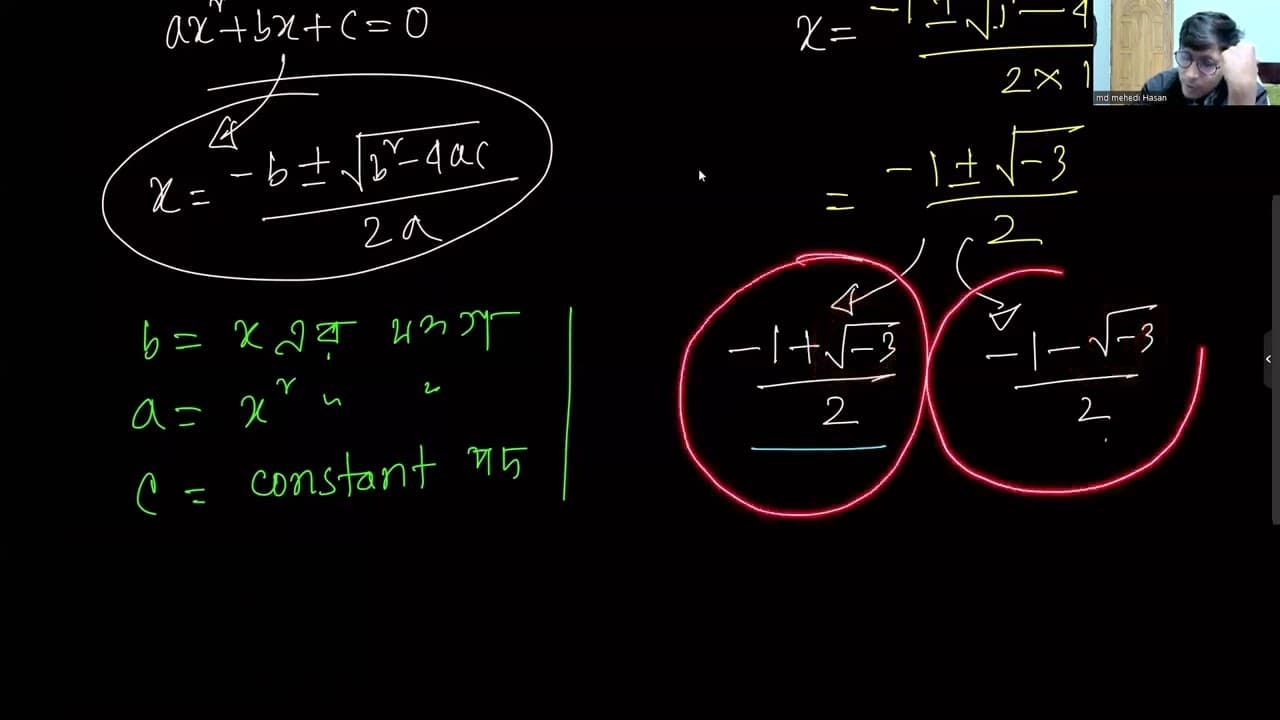 ax² + bx + c = 0
x = (-b ± √(b² - 4ac)) / 2a
b = x এর সহগ
a = x² " "
c = constant পদ
x = (-1 ± √(1² - 4 / (2 × 1
= (-1 ± √-3) / 2
(-1 + √-3) / 2
(-1 - √-3) / 2
md mehedi Hasan